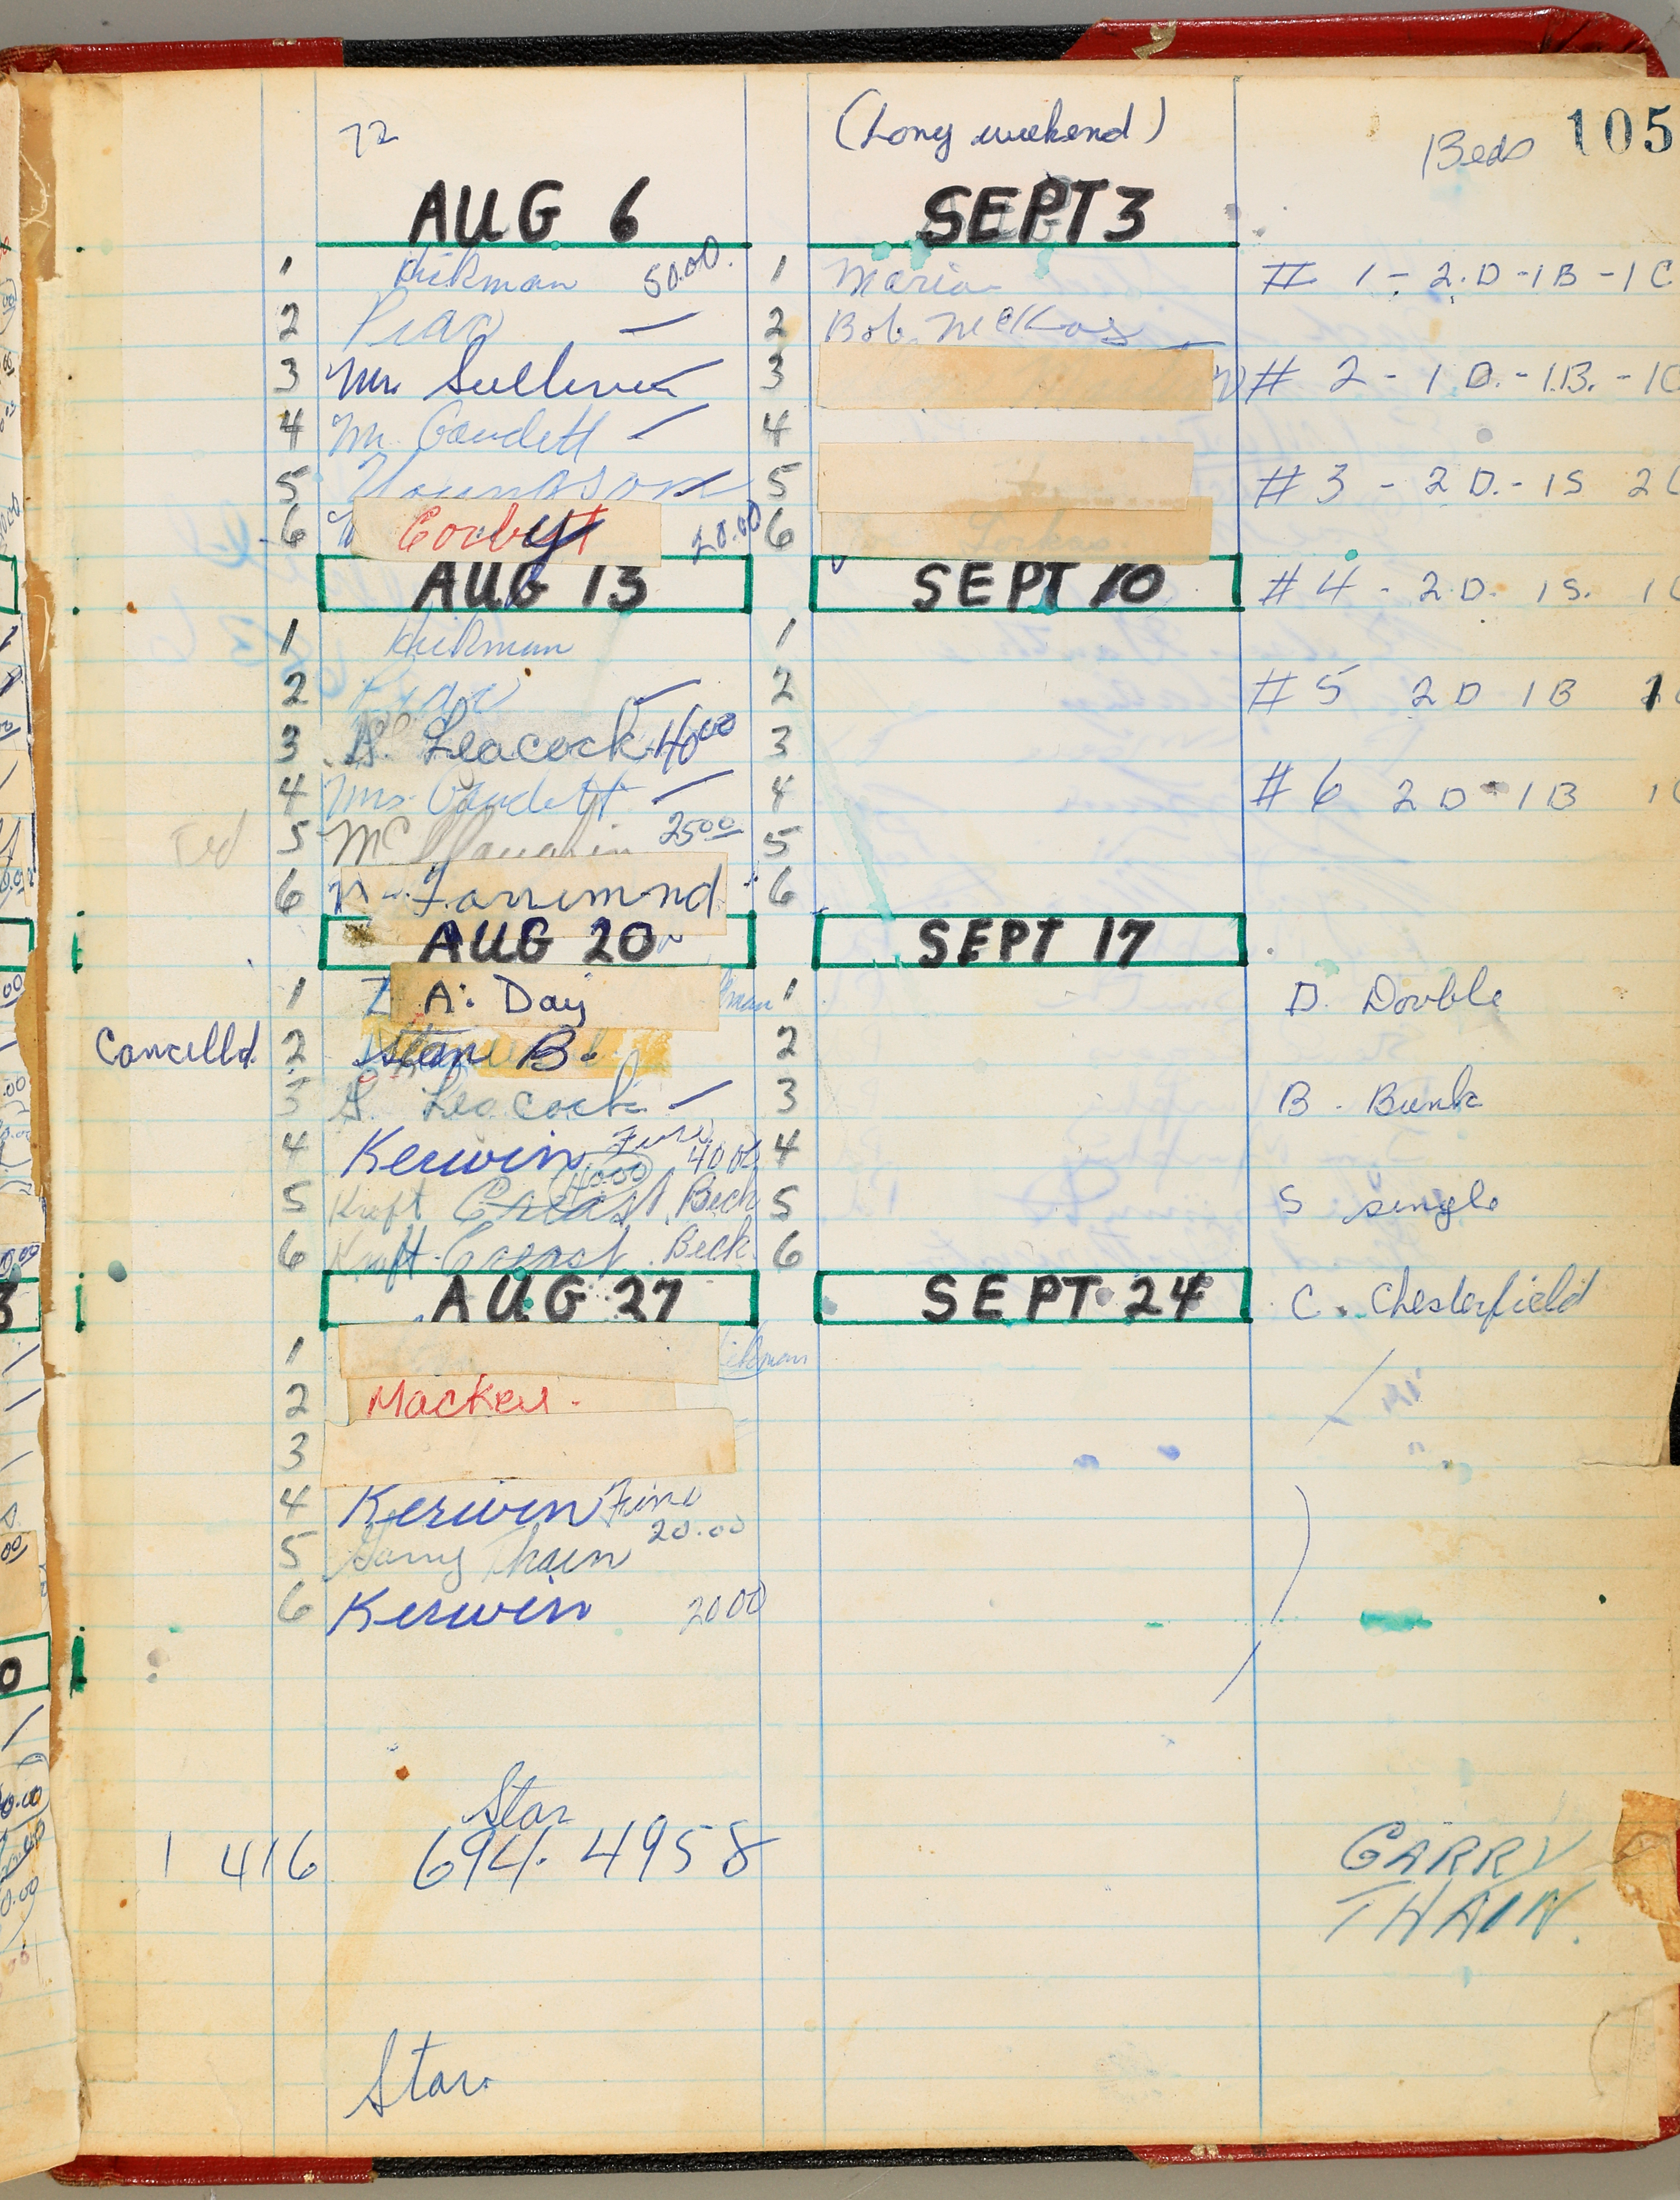 72
(Long weekend)
Beds 105
AUG 6
1 Hickman 50.00.
2
3 Mr. Sullivan
4 Mr. Gaudett
5 Youngson
6 Corby 20.00
AUG 13
1 Hickman
2
3 S. Leacock 40.00
4 Mrs. Gaudett
Ted 5 25.00
6 Farrimond
AUG 20
1 A. Day
Cancelld. 2 Stan B.
3 S. Leacock
4 Kerwin 40.00
40.00
5 Kraft Beck
6 Kraft Beck
AUG 27
1
2 Mackey.
3
4 Kerwin
5 Garry Thain 20.00
6 Kerwin 20.00
Star
1 416 694.4958
Star.
SEPT 3
1 Maria
2 Bob
3
4
5
6
SEPT 10
1
2
3
4
5
6
SEPT 17
1
2
3
4
5
6
SEPT 24
# 1 - 2.D - 1B - 1C
# 2 - 1 D. - 1.B. - 1C
# 3 - 2 D. - 1S 2C
# 4 - 2.D. 1S. 1C
# 5 2D 1B
# 6 2D - 1B 1C
D. Double
B. Bunk
S single
C. Chesterfield
GARRY
THAIN.